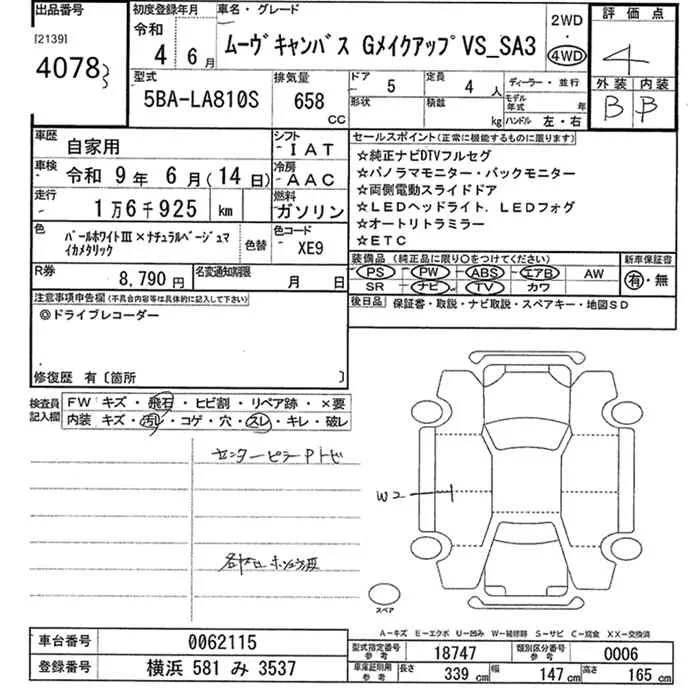 出品番号
[2139]
4078
初度登録年月
令和
4 年 6 月
車名・グレード
ムーヴキャンバス GメイクアップVS_SA3
2WD
・
4WD
評価点
4
外装 内装
B B
型式
5BA-LA810S
排気量
658
CC
ドア
5
定員
4 人
ディーラー・並行
形状
積載
kg
モデル年式 年
ハンドル 左・右
車歴
自家用
シフト
IAT
車検
令和 9 年 6 月(14 日)
冷房
AAC
走行
1万6千925 km
燃料
ガソリン
色
パールホワイトⅢ×ナチュラルベージュマ
イカメタリック
色替
色コード
XE9
R券
8,790 円
名変通知期限
月 日
セールスポイント(正常に機能するものに限ります)
☆純正ナビDTVフルセグ
☆パノラマモニター・バックモニター
☆両側電動スライドドア
☆LEDヘッドライト．LEDフォグ
☆オートリトラミラー
☆ETC
装備品(純正品に限り○をつけてください)
PS PW ABS エアB AW
SR ナビ TV カワ
新車保証書
有・無
後日品
保証書・取説・ナビ取説・スペアキー・地図SD
注意事項申告欄(不具合内容等は具体的に記入して下さい)
◎ドライブレコーダー
修復歴 有〔箇所 〕
検査員
記入欄
FW キズ・飛石・ヒビ割・リペア跡・×要
内装 キズ・汚レ・コゲ・穴・スレ・キレ・破レ
センターピラーPトビ
W2
スペア
A－キズ E－エクボ U－凹み W－補修跡 S－サビ C－腐食 XX－交換済
車台番号
0062115
登録番号
横浜 581 み 3537
型式指定番号
参考
18747
類別区分番号
参考
0006
車庫証明用
参考
長さ
339 cm
幅
147 cm
高さ
165 cm